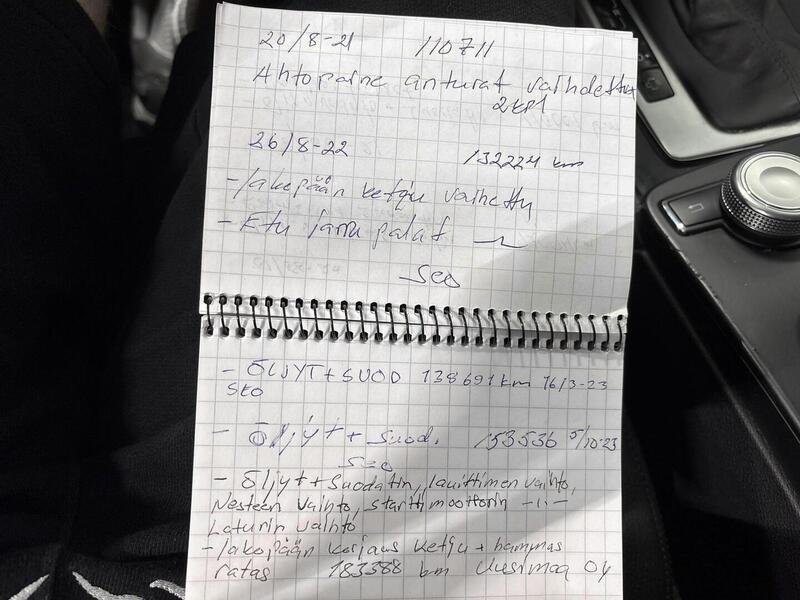 20/8-21 110711
Ahtopaine anturat vaihdettu
2kpl
26/8-22 132224 km
- Jakopään ketju vaihettu
- Etu jarru palat
SEO
- ÖLJYT + SUOD 138691 km 16/3-23
SEO
- Öljyt + Suod. 153536 5/10-23
SEO
- Öljyt + Suodatin, lauittimen vaihto,
Nesteen vaihto, starttimoottorin -11-
Laturin vaihto
- Jakopään korjaus ketju + hammas
ratas 183388 km Uusimaa Oy